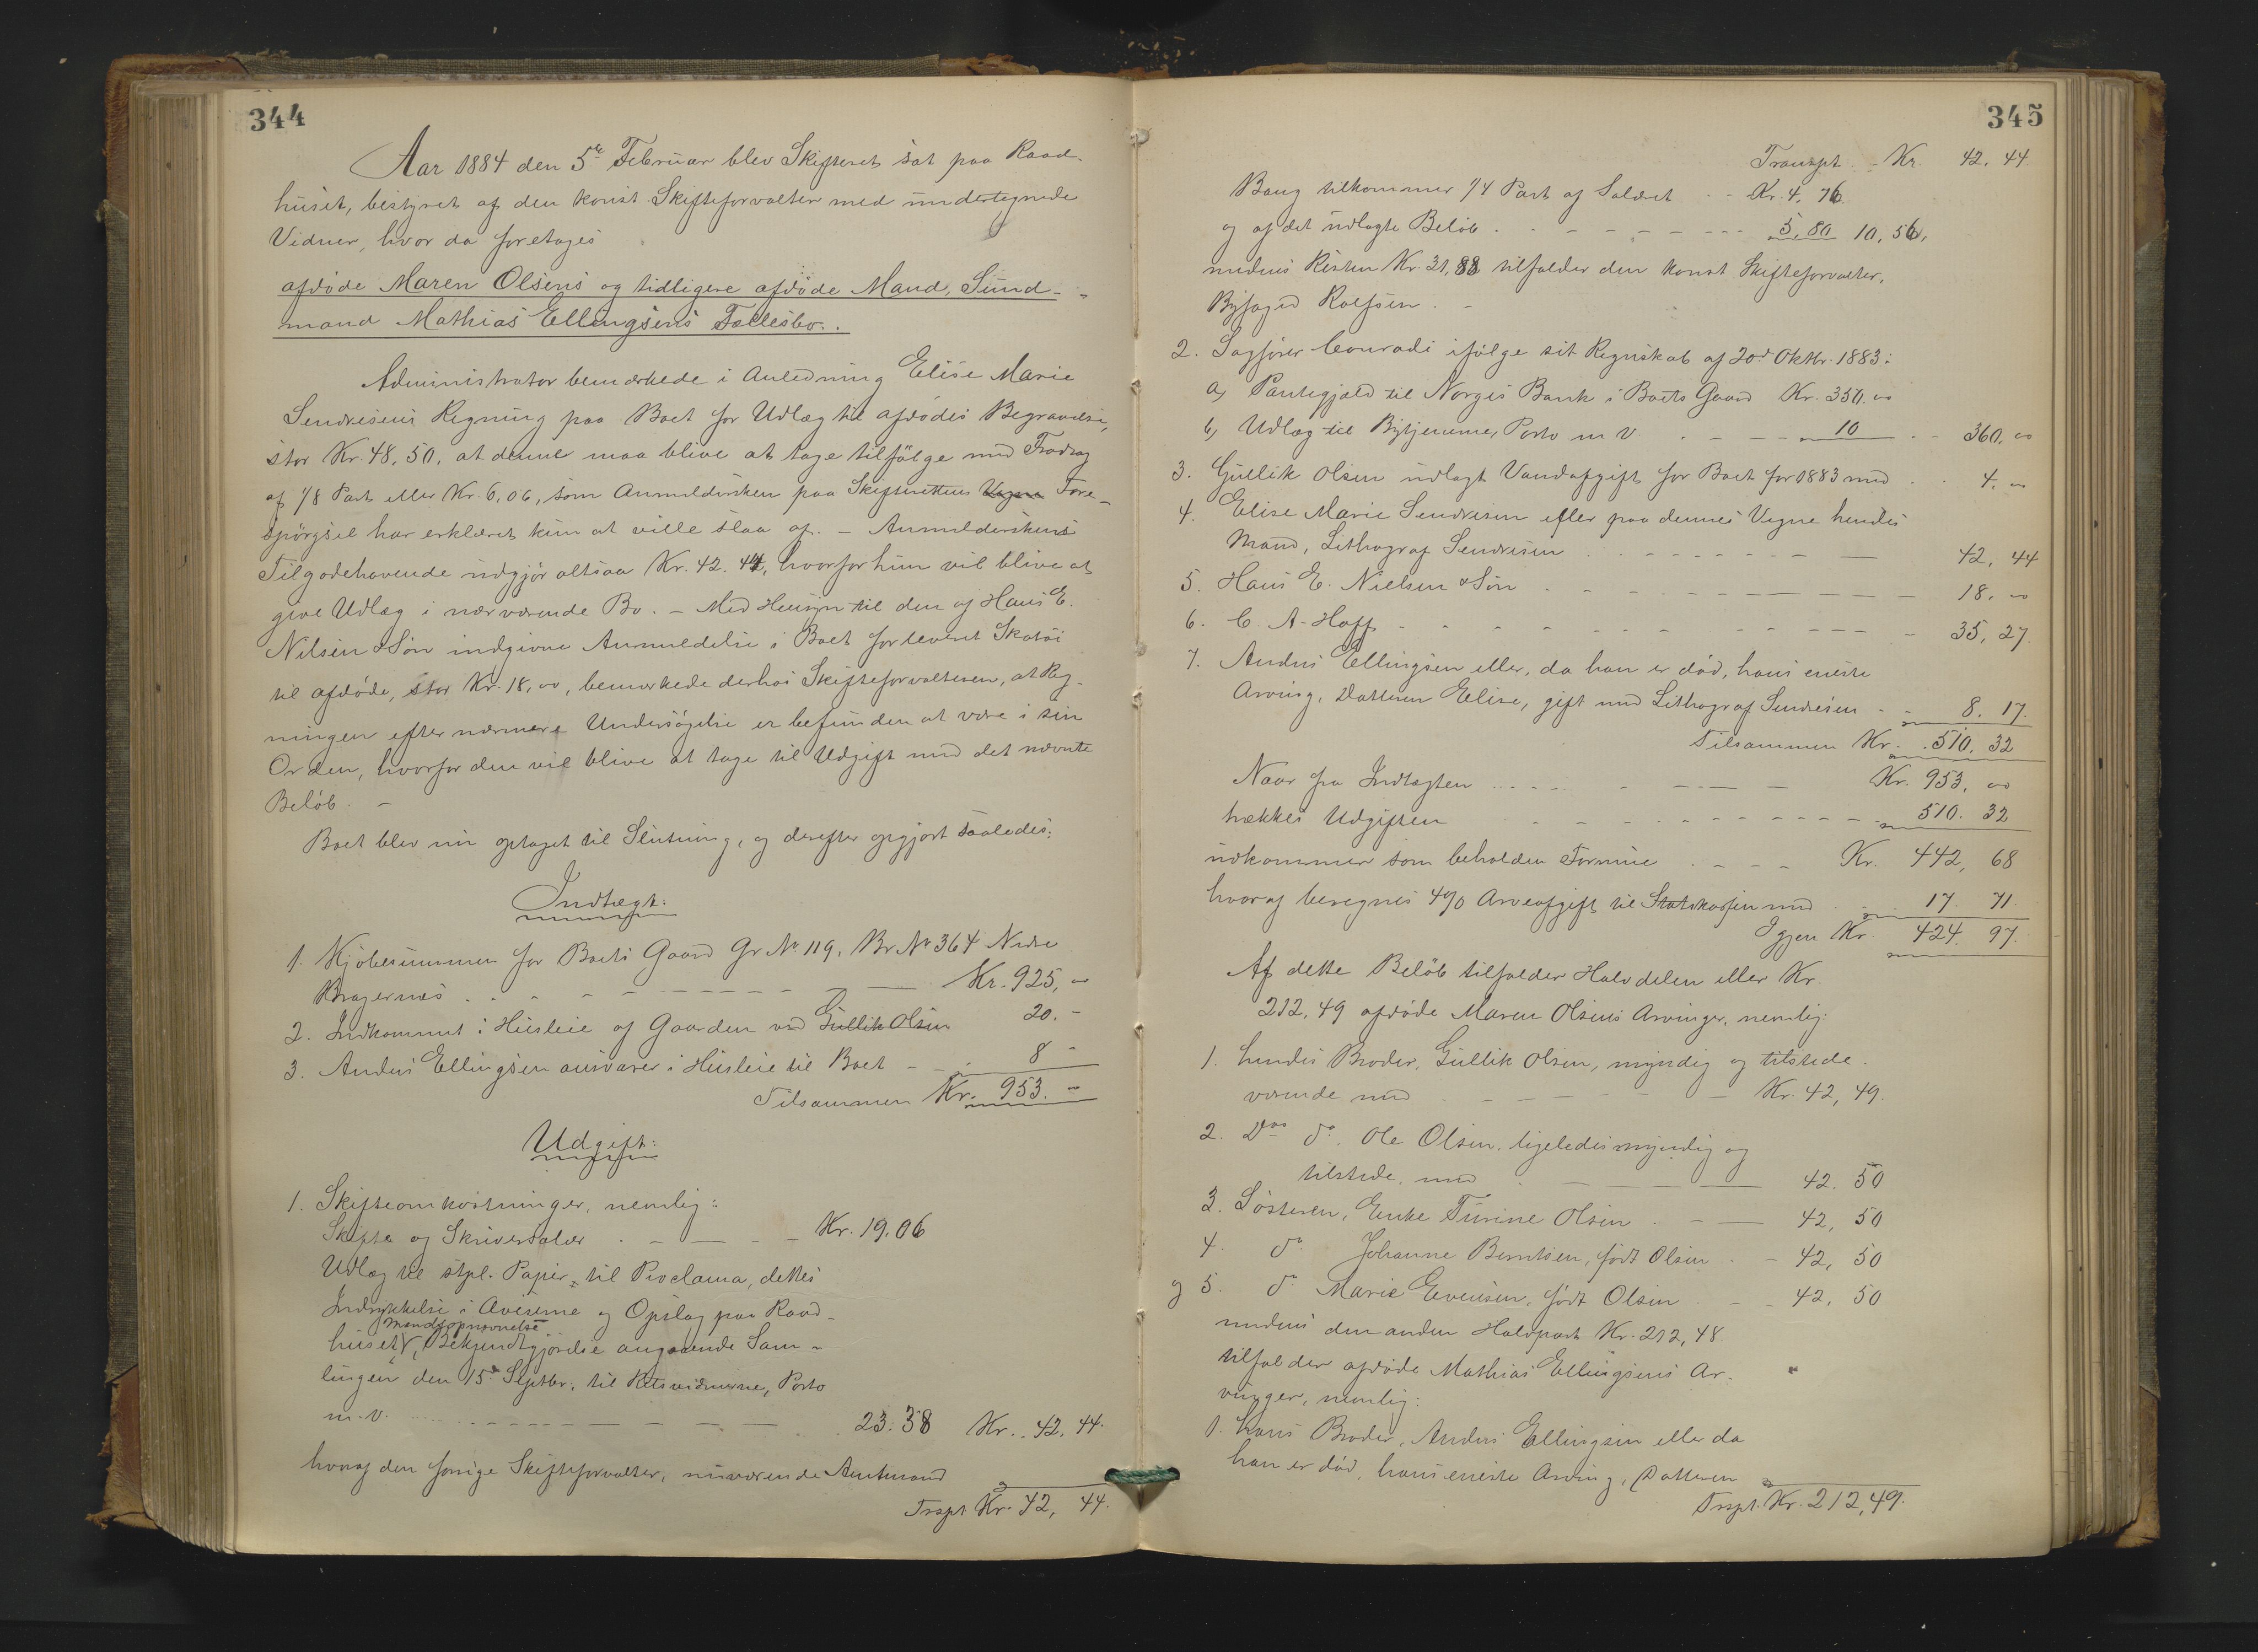 344
Aar 1884 den 5te Februar blev Skifteret sat paa Raad-
huset, bestyret af den konst. Skifteforvalter med undertegnede
Vidner, hvor da foretoges
afdøde Maren Olsens og tidligere afdøde Mand, Sund-
mand Mathias Ellingsens Fællesbo.
Administrator bemærkede i Anledning Elise Marie
Sendresens Regning paa Boet for Udlæg til afdødes Begravelse,
stor Kr. 48,50, at denne maa blive at tage tilfølge med Fradrag
af 1/8 Part eller Kr. 6,06, som Anmeldersken paa Skifterettens Vegne Fore-
spørgsel har erklæret kun at ville slaa af. – Anmelderskens
Tilgodehavende udgjør altsaa Kr. 42.44, hvorfor hun vil blive at
give Udlæg i nærværende Bo. – Med Hensyn til den af Hans E.
Nilsen & Søn indgivne Anmeldelse i Boet for leveret Skotøi
til afdøde, stor Kr. 18,00, bemærkede derhos Skifteforvalteren, at Reg-
ningen efter nærmere Undersøgelse er befunden at være i sin
Orden, hvorfor den vil blive at tage til Udgift med det nævnte
Beløb. –
Boet blev nu optaget til Slutning, og derefter opgjort saaledes:
Indtægt:
1. Kjøbesummen for Boets Gaard Gr. No. 119, Br. No. 364 Nedre
Bragernes Kr. 925,00
2. Indkommet i Husleie af Gaarden ved Gullik Olsen 20.-
3. Anders Ellingsen ansvarer i Husleie til Boet 8 -
Tilsammen Kr. 953. -
Udgift:
1. Skifteomkostninger, nemlig:
Skifte og Skriversalær Kr. 19,06
Udlæg til stpl. Papir, til Proclama, dettes
Indrykkelse i Aviserne og Opslag paa Raad-
Mandsopnævnelse
huset, Bekjendtgjørelse angaaende Sam-
lingen den 15de Septbr., til Retsvidnerne, Porto
m.v. 23.38 Kr. 42,44.
hvoraf den forrige Skifteforvalter, nuværende Amtmand
Trspt Kr. 42,44.
345
Transpt Kr. 42,44
Bang tilkommer 1/4 Part af Salæret Kr. 4,76
og af det udlagte Beløb 5,80 10,56,
medens Resten Kr. 31,88 tilfalder den konst Skifteforvalter,
Byfoged Roefsen.
2. Sagfører Conradi ifølge sit Regnskab af 20de Oktbr. 1883:
a, Pantegjæld til Norges Bank i Boets Gaard Kr. 350.00
b, Udlæg til Bytjenerne, Porto m v. 10 360,00
3. Gullik Olsen udlagt Vandafgift for Boet for 1883 med 4.00
4. Elise Marie Sendresen eller paa dennes Vegne hendes
Mand, Lithograf Sendresen 42,44
5. Hans E. Nielsen & Søn 18,00
6. C. A. Hoff 35,27.
7. Anders Ellingsen eller, da han er død, hans eneste
Arving, Datteren Elise, gift med Lithograf Sendresen 8.17.
Tilsammen Kr. 510.32
Naar fra Indtægten Kr. 953,00
trækkes Udgiften 510.32
udkommer som beholden Formue Kr. 442,68
hvoraf beregnes 4% Arveafgift til Statskassen med 17.71.
Igjen Kr. 424.97.
Af dette Beløb tilfalder Halvdelen eller Kr.
212,49 afdøde Maren Olsens Arvinger, nemlig:
1. hendes Broder, Gullik Olsen, myndig og tilstede-
værende med Kr. 42,49.
2. Dos do. Ole Olsen, ligeledes myndig og
tilstede, med 42.50
3. Søsteren, Enke Turine Olsen 42,50
4. do Johanne Berntsen, født Olsen 42,50
og 5. do Marie Evensen, født Olsen 42,50
medens den anden Halvpart Kr. 212,48
tilfalder afdøde Mathias Ellingsens Ar-
vinger, nemlig:
1. hans Broder, Anders Ellingsen eller da
han er død, hans eneste Arving, Datteren
Trspt. Kr. 212,49.